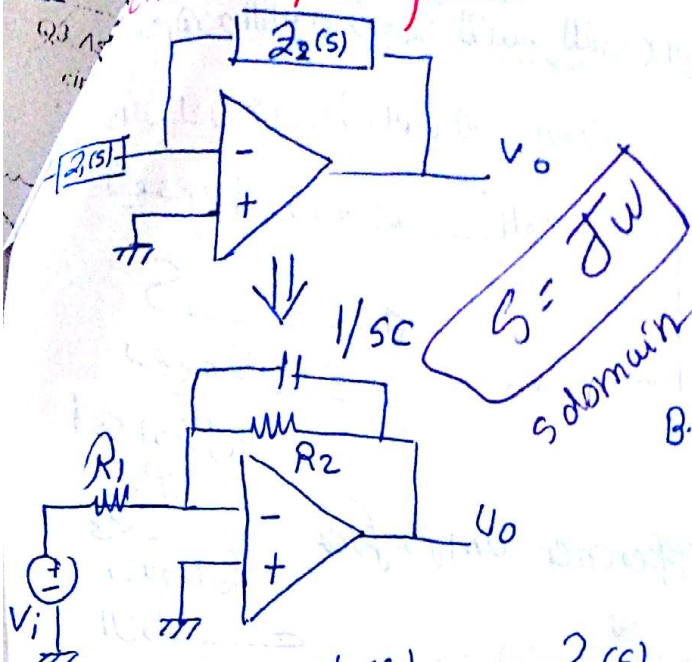 Q3
Z2(S)
Z1(S)
-
+
Vo
S = Jw
s domain
1/SC
B.
R1
R2
-
+
Uo
+
-
Vi
(S)